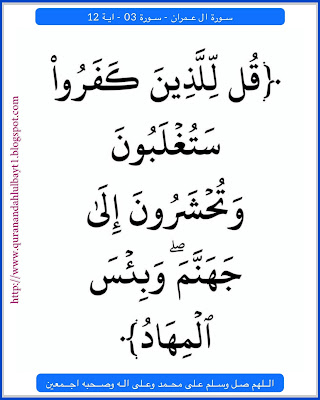 سورة ال عمران - سورة 03 - اية 12
﴿قُل لِّلَّذِينَ كَفَرُواْ
سَتُغْلَبُونَ
وَتُحْشَرُونَ إِلَىٰ
جَهَنَّمَ ۖ وَبِئْسَ
ٱلْمِهَادُ﴾
اللهم صل وسلم على محمد وعلى اله وصحبه اجمعين
http://www.quranandahlulbayt1.blogspot.com